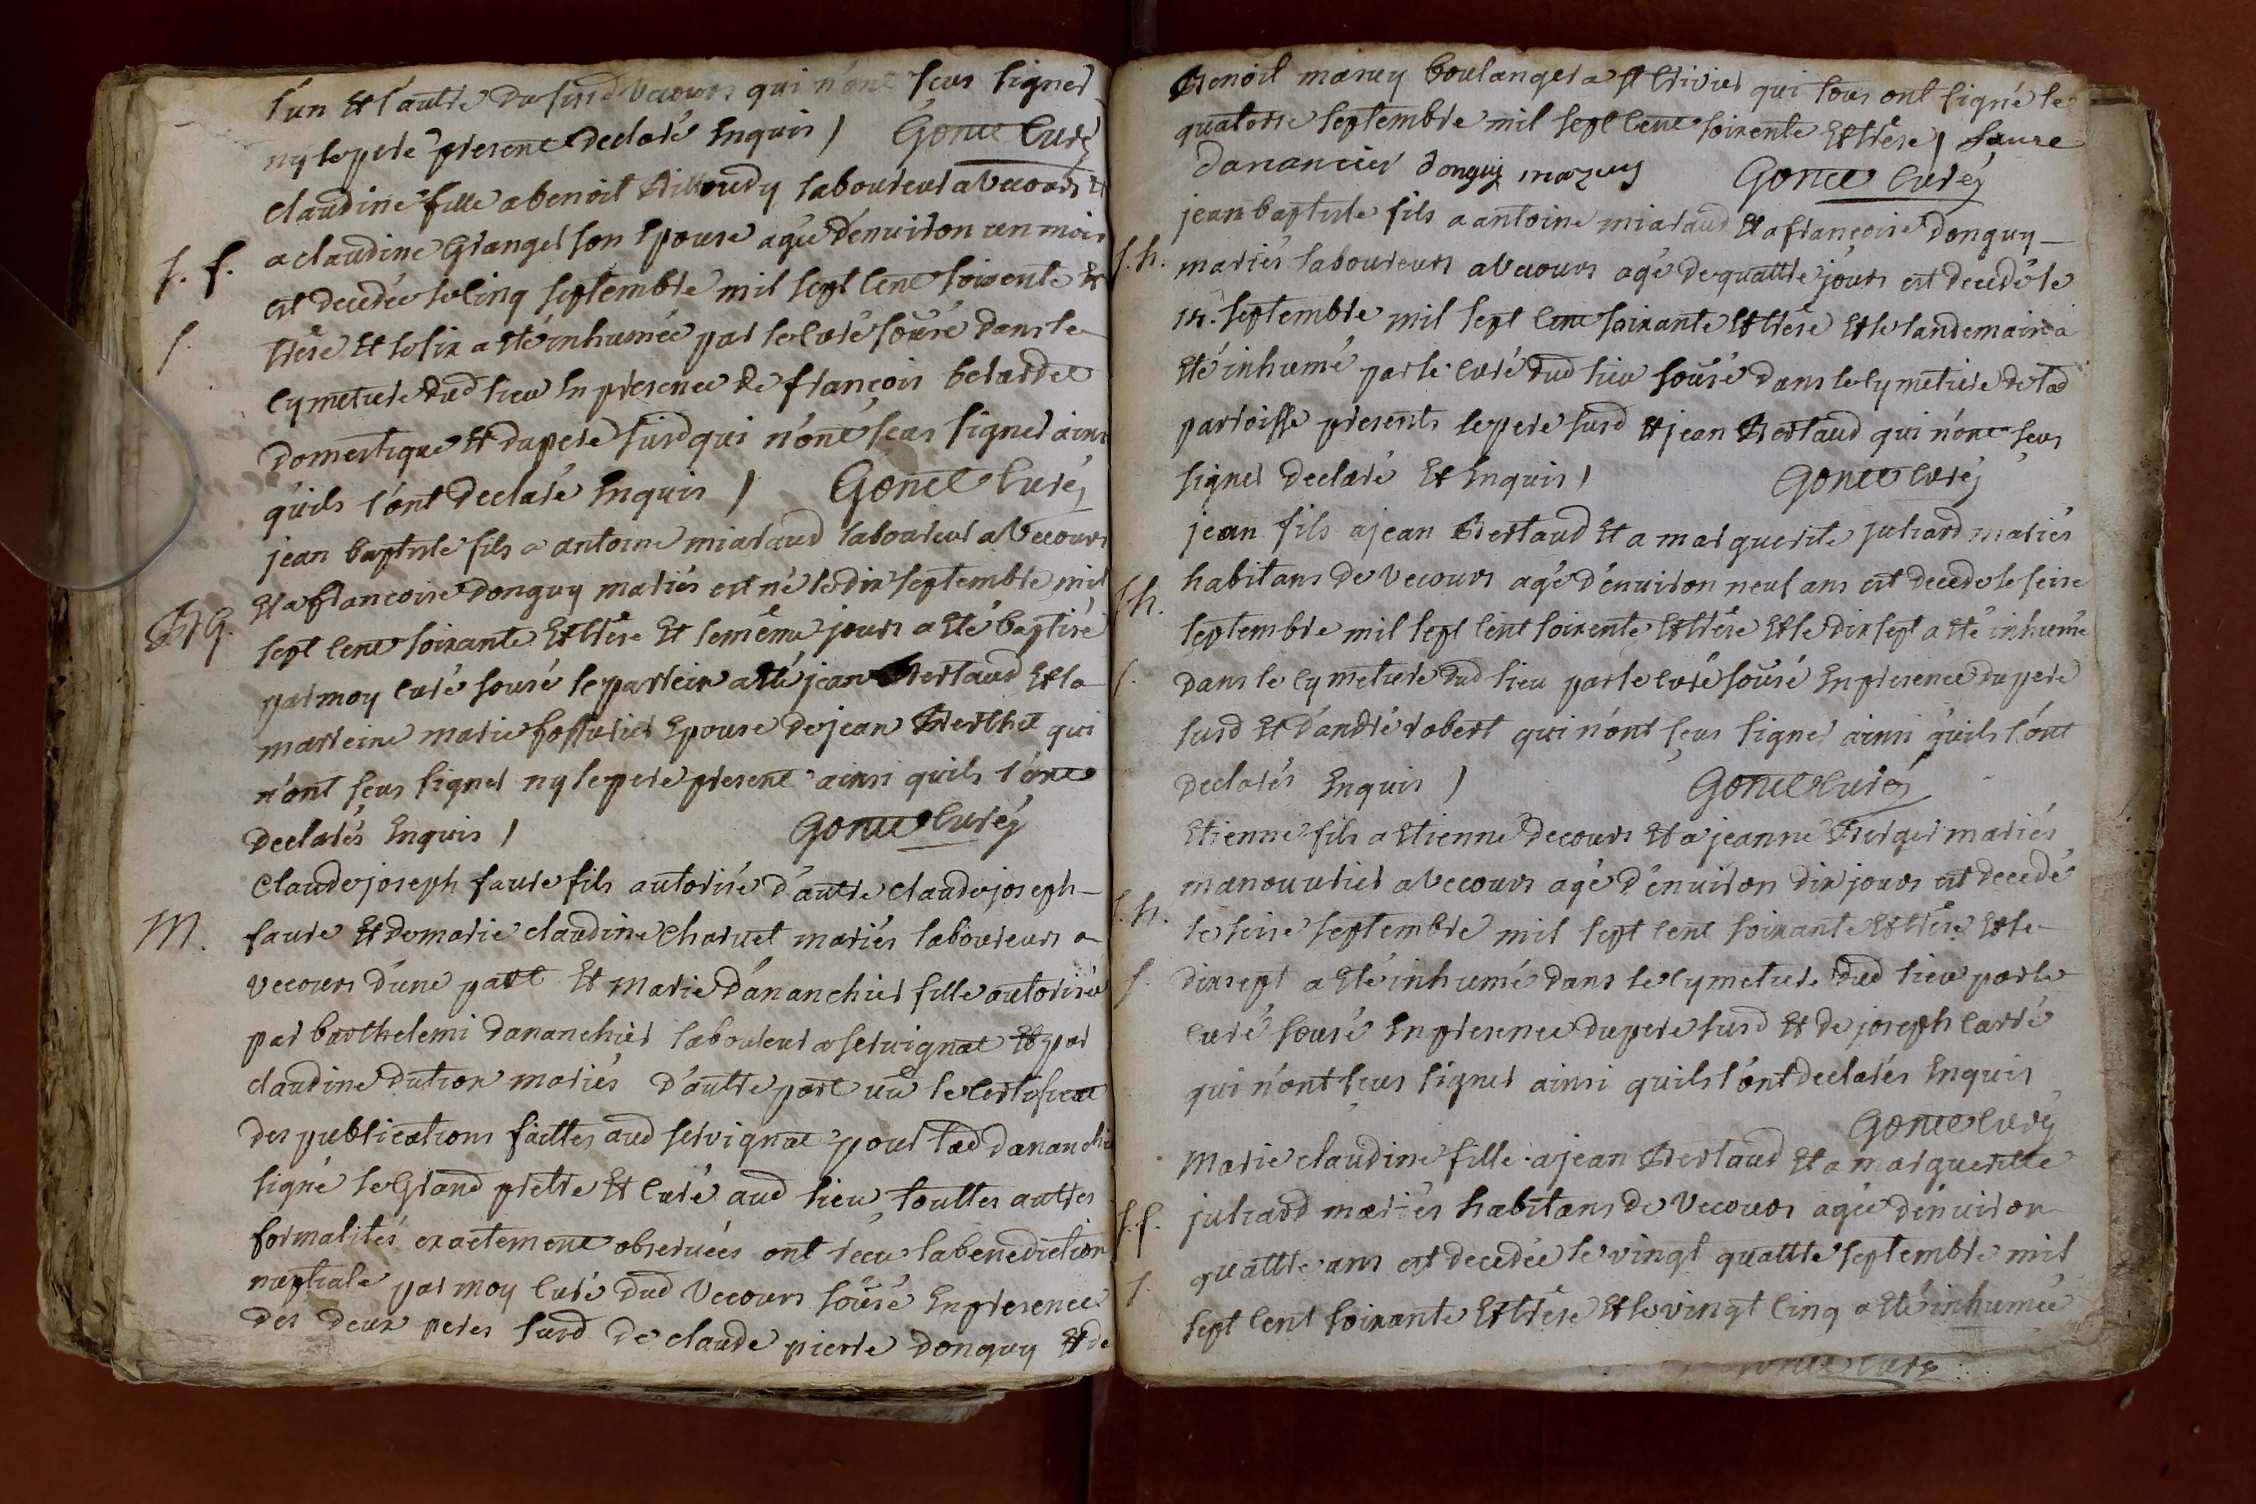 l'un Et l'autre du susd Vecours qui n'ont sçus signer
ny le pere present declaré Enquis / Gonce Curé
Claudine fille a benoit Billoudy laboureur a Vecours Et
a claudine Granger son Epouse agée d'environ un mois
s. f.
est decedée le cinq septembre mil sept cent soixente Et
s.
trese Et le six a Eté inhumée par le curé sousé dans le
cymetiere dud lieu En presence de françois belardet
domestique Et du pere susd qui n'ont sçus signer ainsi
qu'ils l'ont declaré Enquis / Gonce Curé
jean baptiste fils a antoine miaraud laboureur a Vecours
Et a francoise donguy mariés est né le dix septembre mil
B. G.
sept cent soixante Et trese Et le même jours a Eté baptisé
par moy curé sousé le parrein a Eté jean Bertaud Et la
marreine marie fossurier Epouse de jean Berthet qui
n'ont sçus signer ny le pere present ainsi qu'ils l'ont
declarés Enquis / Gonce Curé
Claude joseph faure fils autorisé d'autre claude joseph
M.
faure Et de marie claudine Charvet mariés laboureurs a
Vecours d'une part Et Marie d'ananchier fille autorisée
par barthelemi dananchier laboureur a servignat Et par
claudine dution mariés d'autre part vû le certificat
des publications faittes aud servignat pour lad dananchier
signé le Grand prêtre Et curé aud lieu touttes autres
formalités exactement observées ont reçu la benediction
nuptiale par moy curé dud Vecours sousé En presence
des deux peres susd de claude pierre donguy Et de
Benoit maruy boulanger a st trivier qui tous ont signé le
quatorse septembre mil sept cent soixente Et trese / faure
danancier donguy mazuy Gonce Curé
jean baptiste fils a antoine miaraud Et a françoise donguy
s. h.
mariés laboureurs a Vecours agé de quattre jours est decedé le
14. septembre mil sept cent soixante Et trese Et le landemain a
Eté inhumé par le curé dud lieu sousé dans le cymetiere de lad
parroisse presents le pere susd Et jean Bertaud qui n'ont sçus
signer declaré Et Enquis / Gonce curé
jean fils a jean Bertaud Et a marguerite juliard mariés
s. h.
habitans de Vecours agé d'environ neuf ans est decedé le seise
septembre mil sept cent soixente Et trese Et le dix sept a Eté inhumé
s.
dans le cymetiere dud lieu par le curé sousé En presence du pere
susd Et d'andré robert qui n'ont sçus signer ainsi qu'ils l'ont
declarés Enquis / Gonce Curé
Etienne fils a Etienne decours Et a jeanne Berger mariés
manouvrier a Vecours agé d'environ dix jours est decedé
s. h.
le seise septembre mil sept cent soixante Et trese Et le
s.
dix sept a Eté inhumé dans le cymetiere dud lieu par le
curé sousé En presence du pere susd Et de joseph carré
qui n'ont sçus signer ainsi qu'ils l'ont declarés Enquis
Gonce curé
Marie claudine fille a jean Bertaud Et a margueritte
s. f.
juliard mariés habitans de Vecours agée d'environ
quattre ans est decedée le vingt quattre septembre mil
s.
sept cent soixante Et trese Et le vingt cinq a Eté inhumée
Gonce curé